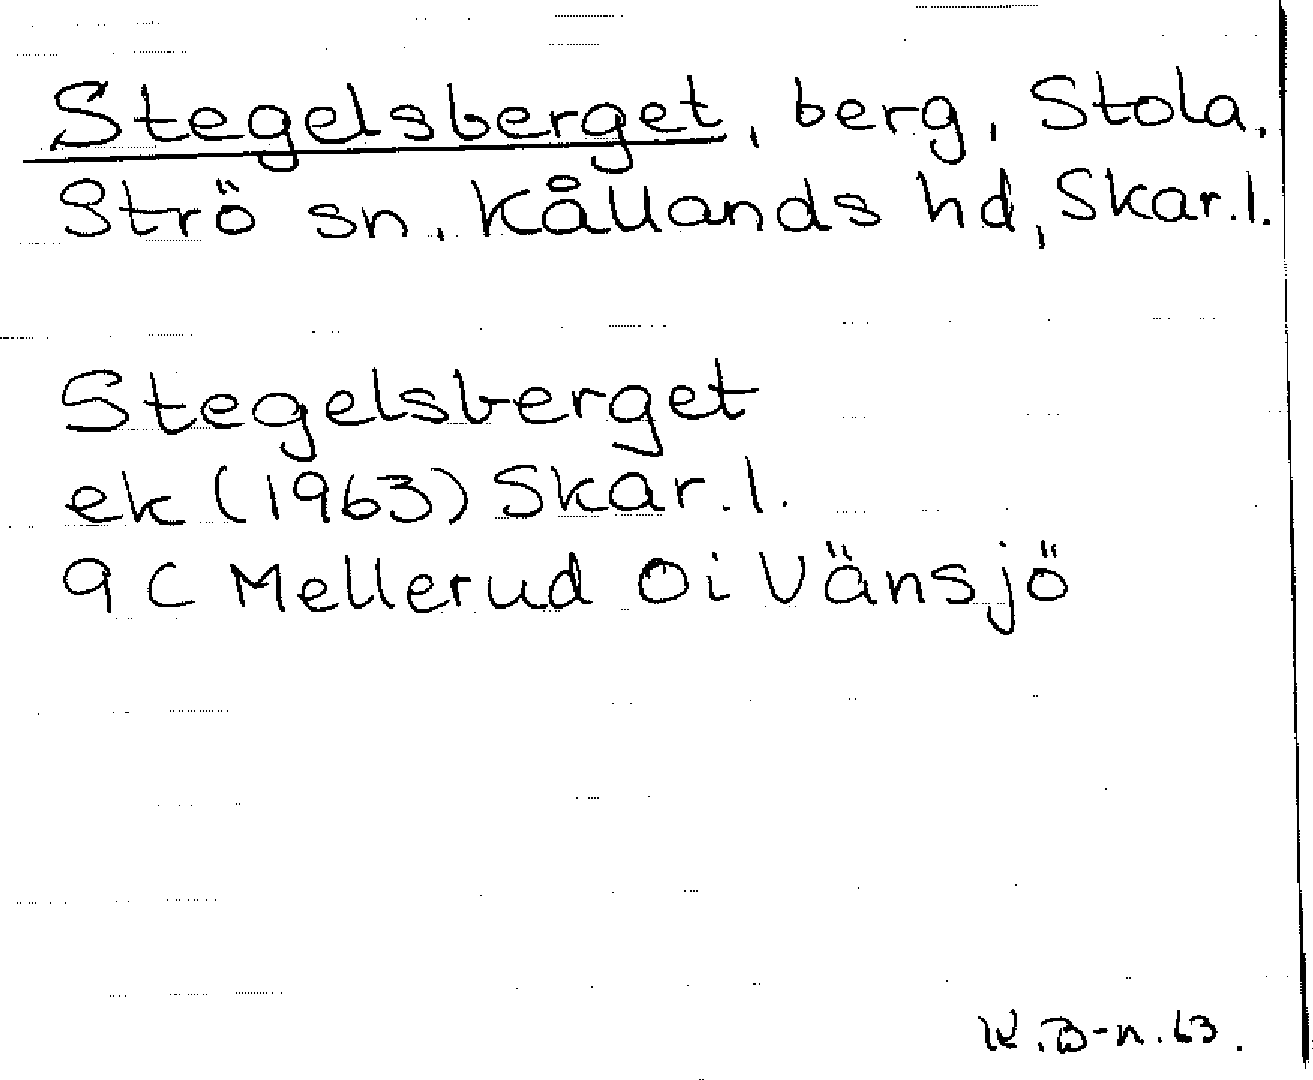 Stegelsberget, berg, Stola,
Strö sn, Kållands hd, Skar.l.
Stegelsberget
ek (1963) Skar.l.
9C Mellerud Öi Vänsjö
K.B-n.63.